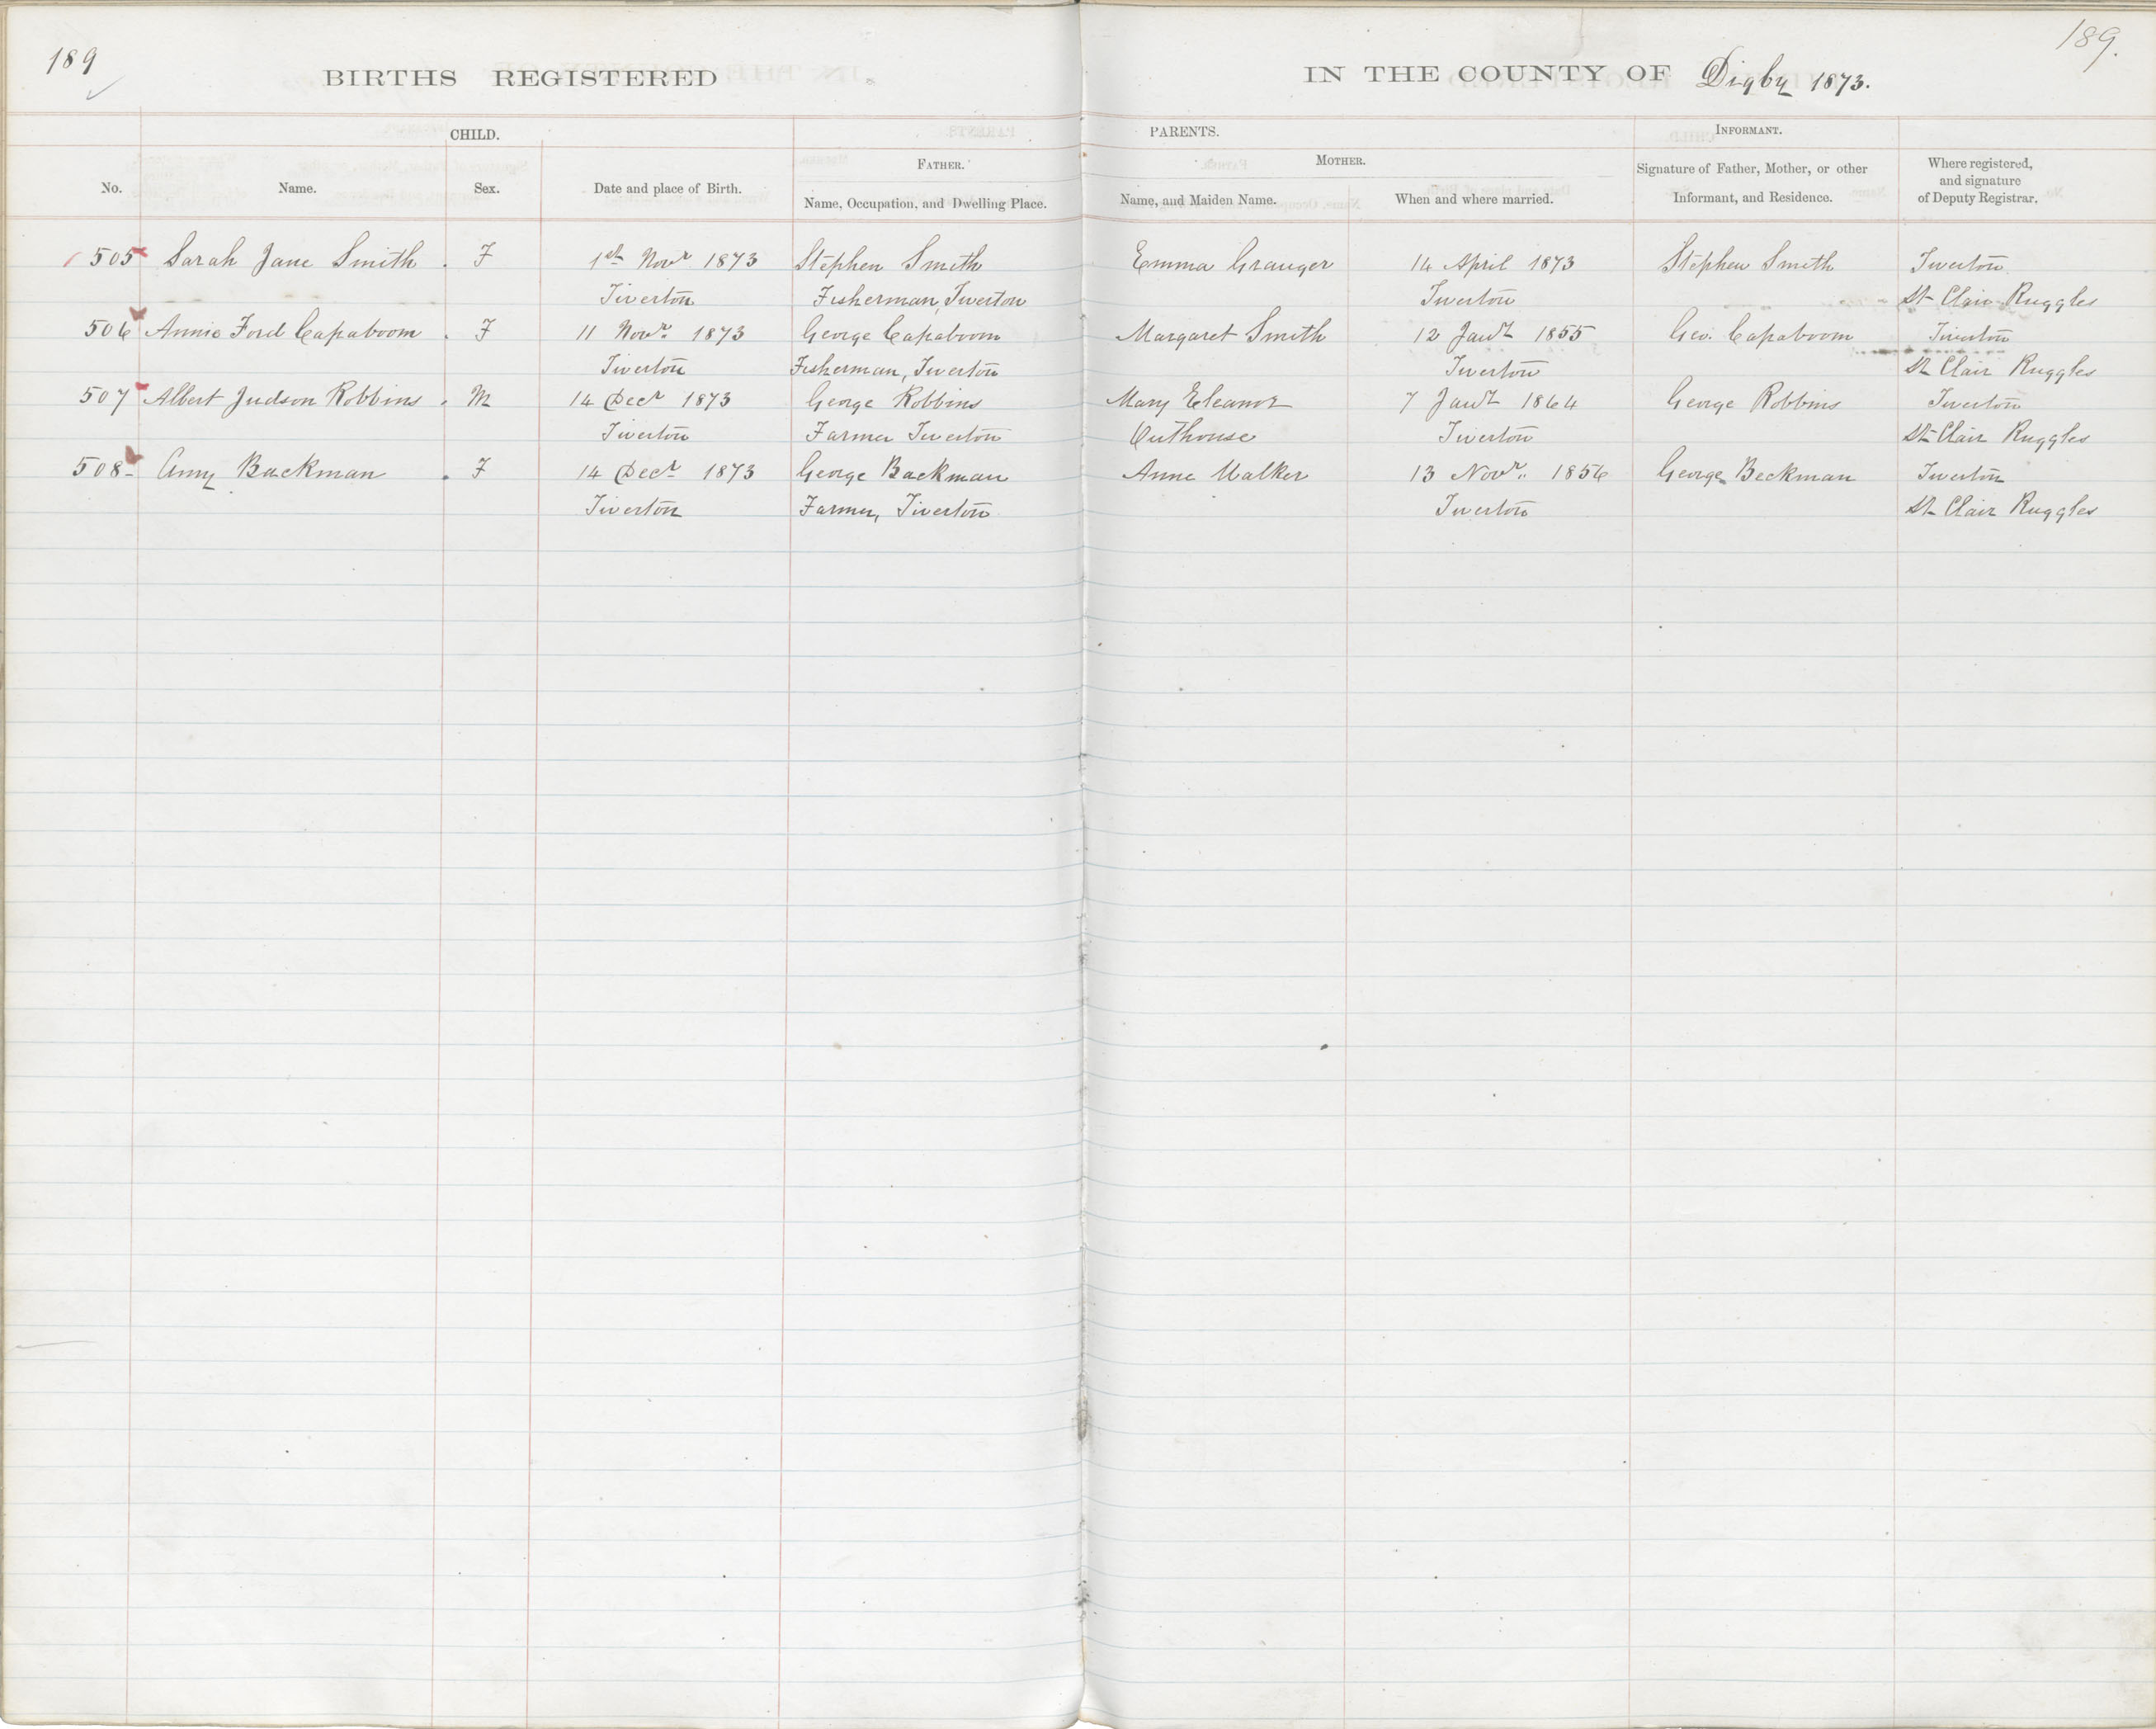 189
189.
BIRTHS REGISTERED IN THE COUNTY OF Digby 1873.
CHILD. PARENTS. INFORMANT.
FATHER. MOTHER.
No. Name. Sex. Date and place of Birth. Name, Occupation, and Dwelling Place. Name, and Maiden Name. When and where married. Signature of Father, Mother, or other Informant, and Residence. Where registered, and signature of Deputy Registrar.
505 Sarah Jane Smith . F 1st Novr 1873 Stephen Smith Emma Granger 14 April 1873 Stephen Smith Tiverton
Tiverton Fisherman, Tiverton Tiverton St Clair Ruggles
506 Annie Ford Capaboom . F 11 Novr. 1873 George Capaboom Margaret Smith 12 Jany 1855 Geo. Capaboom Tiverton
Tiverton Fisherman, Tiverton Tiverton St Clair Ruggles
507 Albert Judson Robbins . M 14 Decr 1873 George Robbins Mary Eleanor 7 Jany 1864 George Robbins Tiverton
Tiverton Farmer Tiverton Outhouse Tiverton St Clair Ruggles
508- Amy Backman . F 14 Decr 1873 George Backman Anne Walker 13 Novr. 1856 George Beckman Tiverton
Tiverton Farmer, Tiverton Tiverton St Clair Ruggles